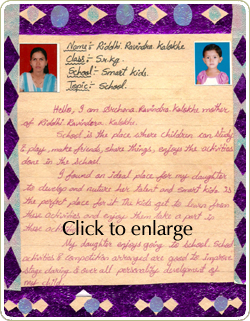 Name:- Riddhi. Ravindra Kalokhe
Class:- Sr.Kg.
School:- Smart Kids.
Topic:- School.
Hello, I am Archana. Ravindra Kalokhe mother
of Riddhi Ravindra. Kalokhe.
School is the place where children can study
& play, make friends, share things, enjoys the activities
done in the school.
I found an ideal place for my daughter
to develop and nuture her talent and smart kids Is
the perfect place for it. The kids get to learn from
these activities and enjoy them take a part in
these activities.
Click to enlarge
My daughter enjoys going to school. School
activities & competition arranged are good to improve
stage daring & over all personality development of
my child.